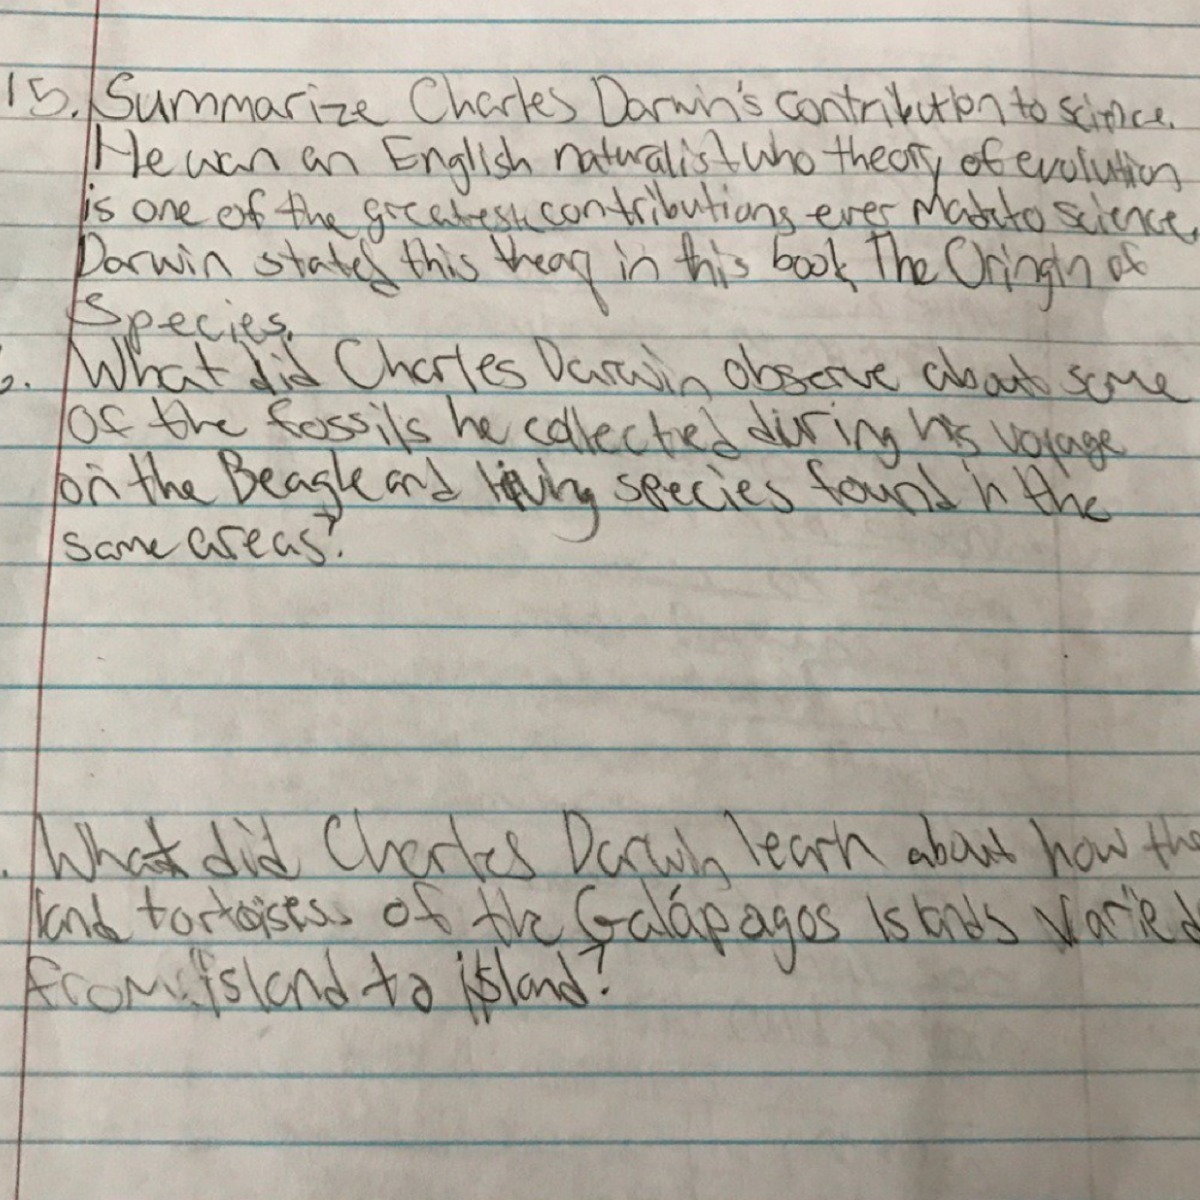 15. Summarize Charles Darwin's contribution to science.
He was an English naturalist who theory of evolution
is one of the greatest contributions ever made to science.
Darwin stated this theory in this book, The Oringin of
Species.
What did Charles Darwin observe about some
of the fossils he collected during his voyage
on the Beagle and living species found in the
same areas?
What did Charles Darwin learn about how the
land tortoises of the Galápagos Islands varied
from island to island?